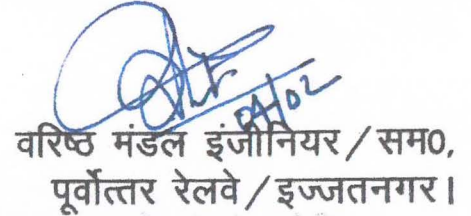 वरिष्ठ मंडल इंजीनियर/सम0,
पूर्वोत्तर रेलवे/इज्जतनगर।